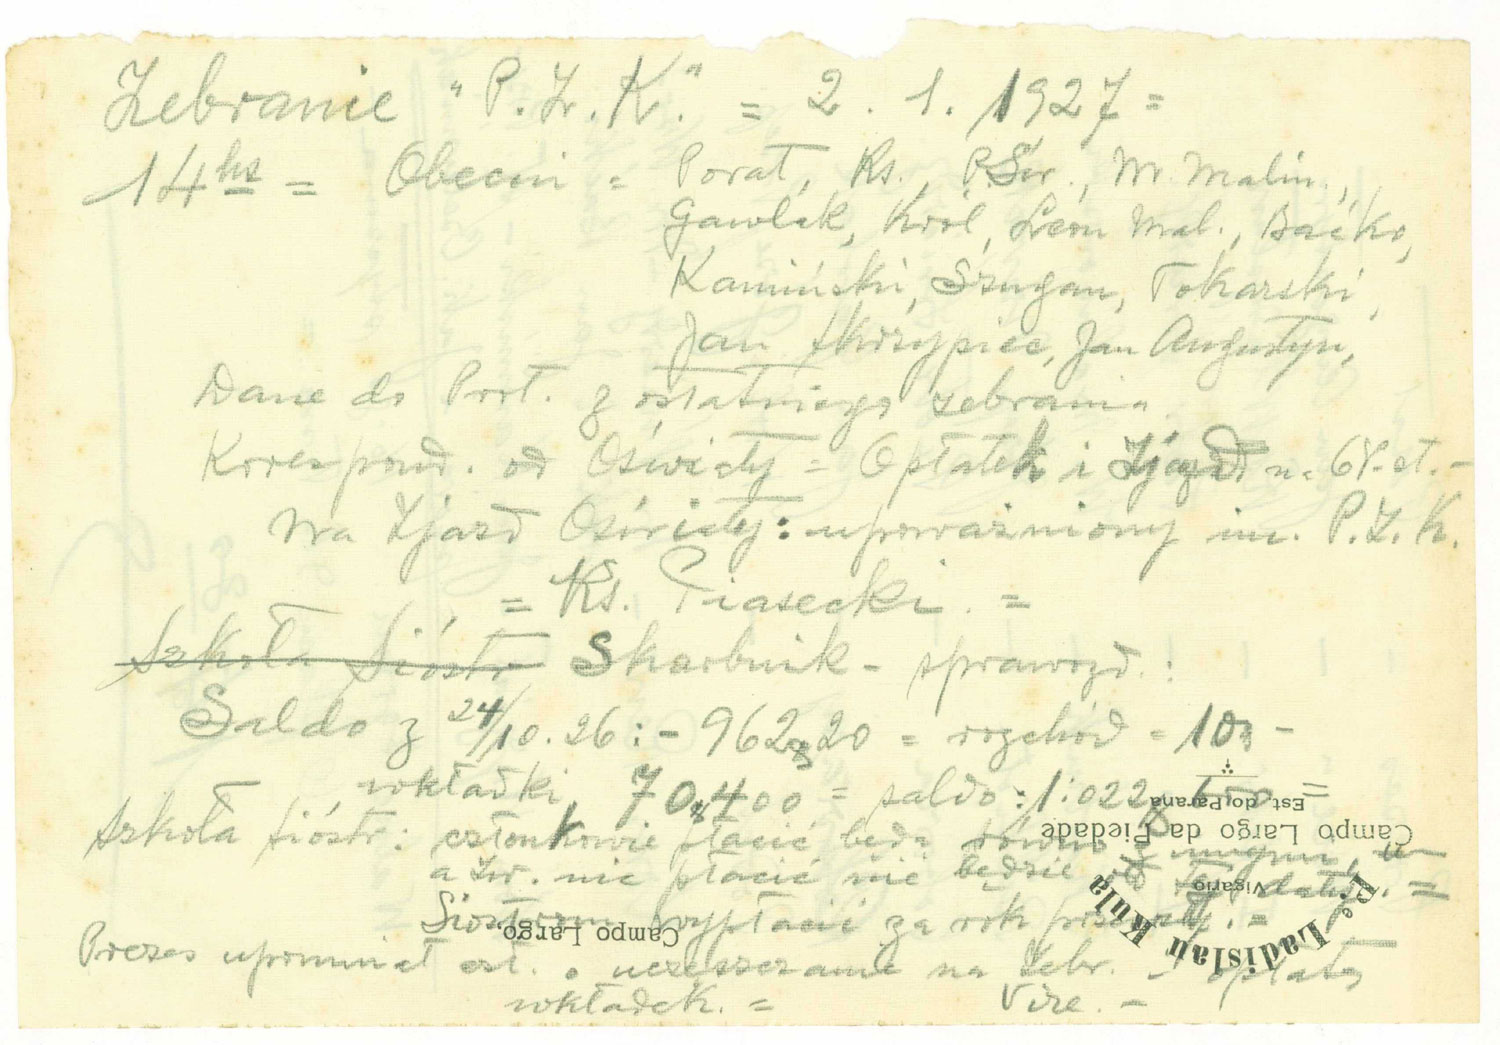 Zebranie "P. Zw. K." = 2. 1. 1927 =
14 hs = Obecni = Porat, Ks., P. Św., Wł. Malin.,
Gawlak, Król, Leon Mal., Baćko,
Kamiński, Szugan, Tokarski,
Jan Skrzypiec, Jan Augustyn,
Dane do Prot. z ostatniego zebrania.
Korespond. od Oświaty = Opłatek i Zjazd na 6 st. -
Na Zjazd Oświaty: upoważniony im. P. Z. K.
= Ks. Piasecki. =
Szkoła Sióstr Skarbnik - sprawozd.:
Saldo z 24/10.26: - 962$20 = rozchód = 10$ -
wkładki 70$400 = saldo: 1:022 =
Szkoła Sióstr: członkowie płacić będą równo z innymi,
a Zw. nic płacić nie będzie
Siostrom wypłacić za rok
Prezes upominał o uczęszczanie na Zebr. - opłatę
wkładek. = Vize. -
P.e Ladislau Kula
Vigario
Campo Largo da Piedade
Est do Paraná
Campo Largo,